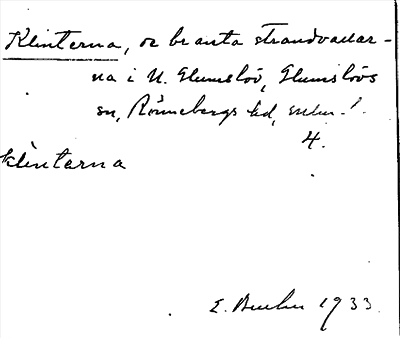 Klinterna, de branta strandvallar-
na i N. Glumslöv, Glumslövs
sn, Rönnebergs hd,
4.
klintarna
E. 1933